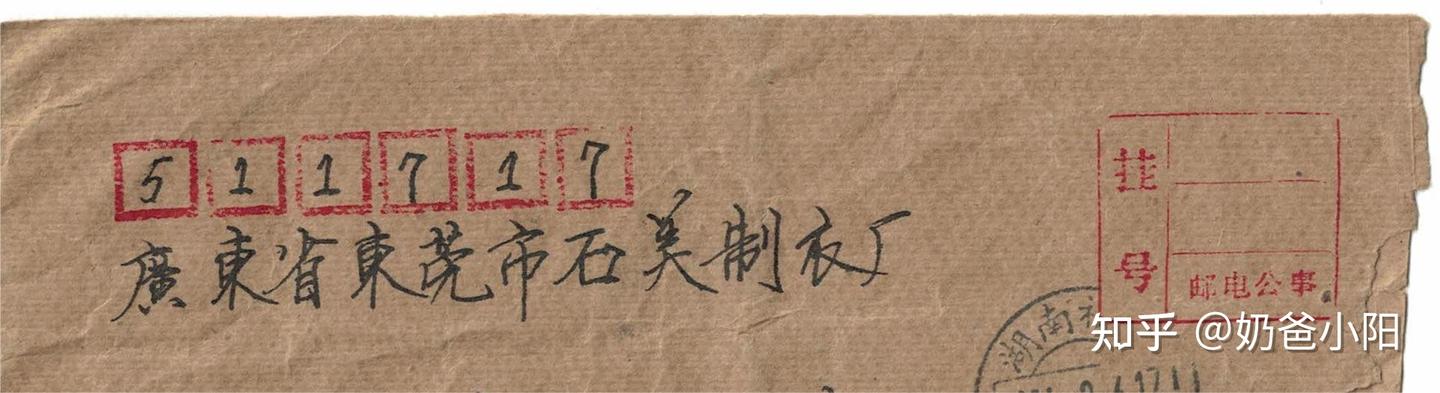 511717
廣東省東莞市石美制衣厂
挂号
邮电公事
湖南
知乎 @奶爸小阳